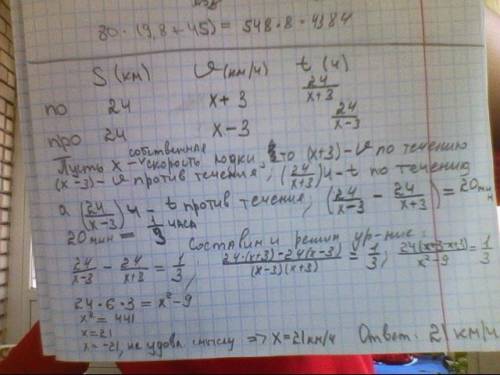 80 · (9,8 + 45) = 548 · 8 = 4384
S (км) V (км/ч) t (ч)
по 24 x+3 24/(x+3)
про 24 x-3 24/(x-3)
Пусть x - собственная скорость лодки, то (x+3) - V по течению
(x-3) - V против течения, (24/(x+3)) ч - t по течению
а (24/(x-3)) ч - t против течения, (24/(x-3) - 24/(x+3)) = 20 мин
20 мин = 1/3 часа
Составим и решим ур-ние:
24/(x-3) - 24/(x+3) = 1/3, (24·(x+3)-24(x-3))/((x-3)(x+3)) = 1/3, 24(x+3-x+3)/(x²-9) = 1/3
24·6·3 = x²-9
x² = 441
x=21
x=-21, не удовл. смыслу => x=21 км/ч Ответ: 21 км/ч